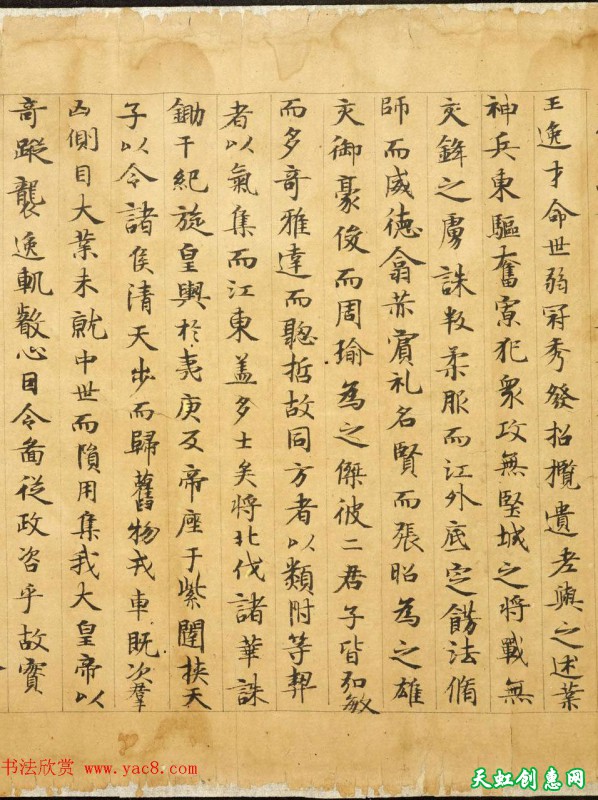 王逸才命世弱冠秀發招攬遺老與之述業
神兵東驅奮寡犯衆攻無堅城之將戰無
交鋒之虜誅叛柔服而江外底定餝法脩
師而威德翕赫賓礼名賢而張昭為之雄
交御豪俊而周瑜為之傑彼二君子皆弘敏
而多奇雅達而聰哲故同方者以類附等契
者以氣集而江東盖多士矣將北伐諸華誅
鋤干紀旋皇輿於夷庚反帝座于紫闥挾天
子以令諸侯清天步而歸舊物戎車既次羣
凶側目大業未就中世而隕用集我大皇帝以
奇蹤襲逸軌叡心目令啚從政咨乎故實
书法欣赏 www.yac8.com
天虹创惠网